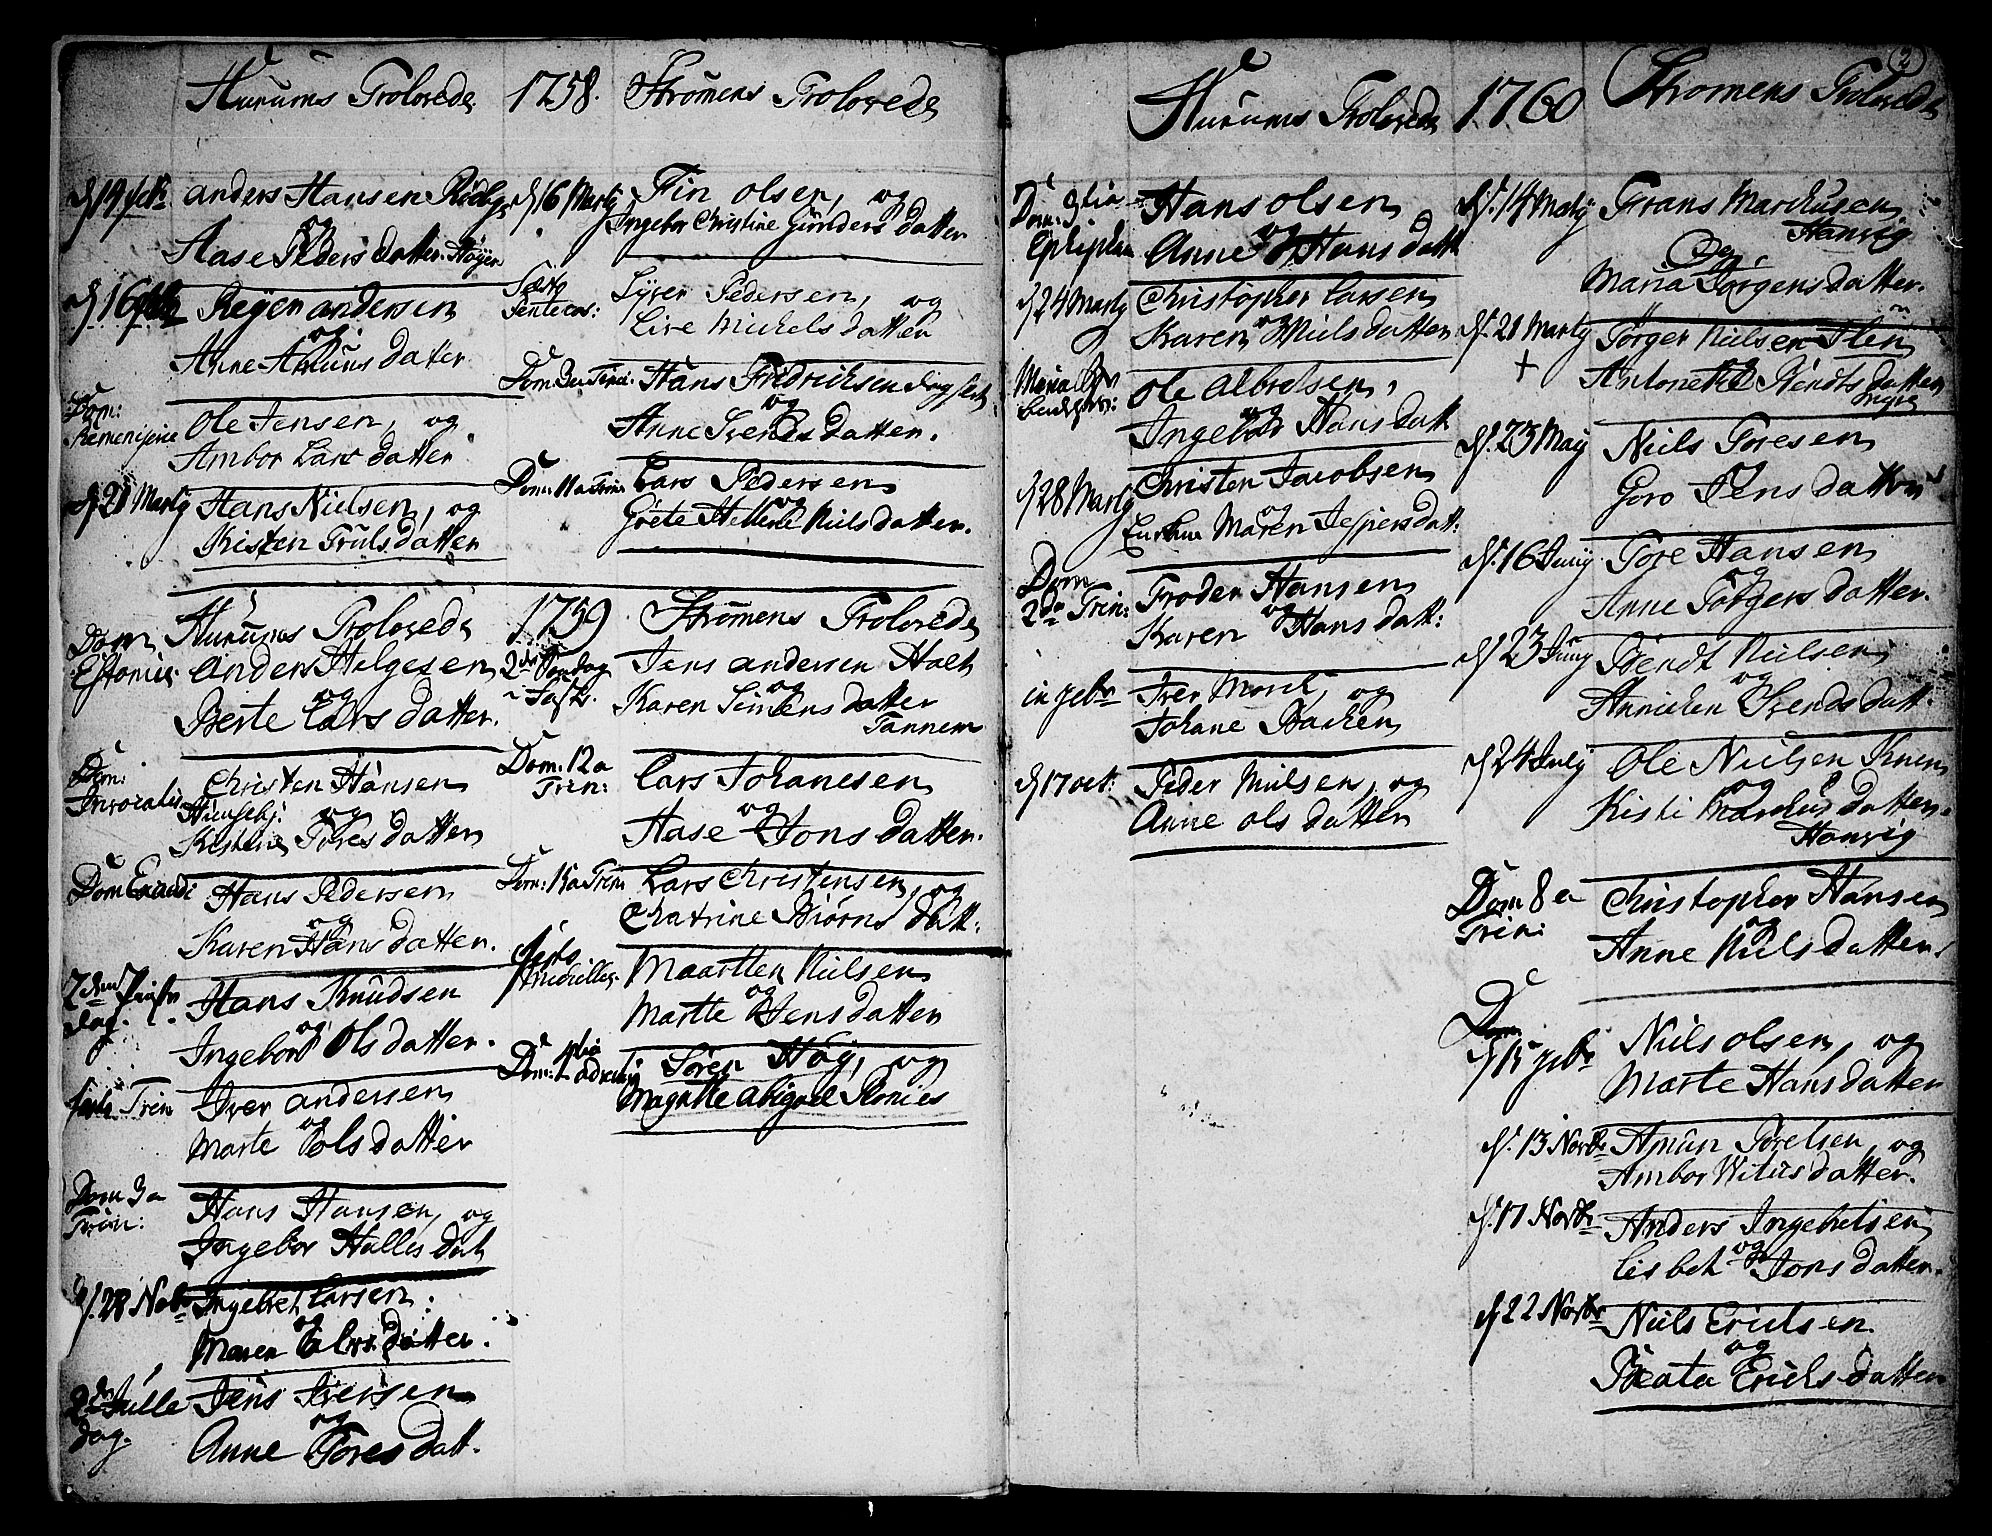 Hurums Trolovede 1758. Strømens Trolovede
d 14 febr. anders Hansen Rødbye
og
Aase Peders datter Høyen
d 16 febr Reyer andersen
og
Anne Amuns datter
Dom: Reminiscere Ole Jensen, og
Ambor Lars datter
d 21 Marty Hans Nielsen, og
Kisten Truls datter
d 16 Marty Fin olsen, og
Ingebor Christine Gunders datter
Festo Pentecos: Syver Pedersen, og
Live Michels datter
Dom: Trini: Hans Fredrichsen
og
Anne Svends datter.
Dom: 11 a Trin: Lars Pedersen
og
Grete Hellene Niels datter.
Hurums Trolovede 1759. Strømens Trolovede
Dom Estomii: Anders Helgesen
og
Berte Lars datter.
Dom: Invocavit Christen Hansen
og
Kistene Tores datter
Dom Exaudi Hans Pedersen
og
Karen Hans datter.
2den Pinse dag. Hans Knudsen
og
Ingebor Ols datter.
festo Trin Iver andersen
og
Marte ols datter
Dom 3 a Trin: Hans Hansen, og
Ingebor Halles dat
d. 28 Nobr Ingebret Larsen
og
Maren datter.
2d Julle dag. Jens Iversen
og
Anne Tores datt.
2den Søndag Fast. Jens andersen Holt
og
Karen Simens datter
Dom: 12 a Trin: Lars Johanesen
og
Aase Jons datter.
Dom: a Trin Lars Christensen, og
Chatrine Biørns datt:
festo Maartten Nielsen
og
Martte Jens datter
Dom: adventus Søren Høy, og
Magrette Abigael
2
Hurums Trolovede 1760 Strømens Trolovede
Dom: 3tia Epiphan Hans olsen
og
Anne Hans datt
d 24 Marty Christopher Larsen
og
Karen Niels datter
Maria Ole Albretsen,
og
Ingebor Hans datt
d 28 Marty Christen Jacobsen
og
Maren Jespers datt:
Dom 2da Trin: Froder Hansen
og
Karen Hans datt:
in 7br Iver Moril, og
Johane Backen
d 17 oct: Peder Nielsen, og
Anne ols datter
d. 14 Marty Frans Marchusen
Hanvig
og
Maria Jørgens datter.
d. 21 Marty Jørger Nielsen
+ Antonette Bendts datter
d. 23 May Niels Toresen
og
Goro Jens datter
d. 16 Juny Tore Hansen
og
Anne Jørgers datter.
d 23 Juny Bendt Nielsen
og
Annichen Svends datt.
d 24 July Ole Nielsen
og
Kisti Marchus datter.
Hanvig
Dom 8 a Trin: Christopher Hansen
og
Anne Niels datter
Dom
d 15 Niels olsen, og
Marte Hans datter
d. 13 Novbr Amun Torelsen, og
Ambor Witus datter.
d. 17 Novbr Anders Ingebretsen
og
Lisbeth Jons datter.
d 22 Novbr Niels Erichsen
og
Beata Erichs datter